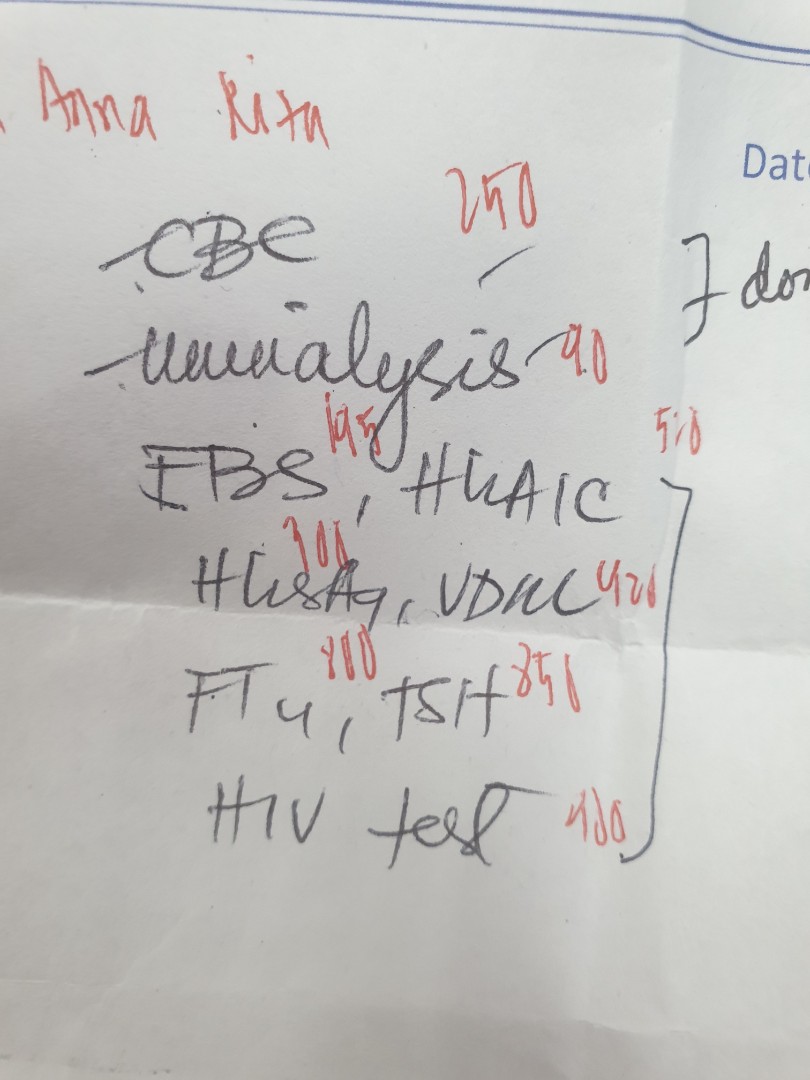 Anna Rita
Date
250
CBC
] don
Urinalysis 90
195 510
FBS, HbA1C
300
HBsAg, VDRL 420
800
FT4, TSH 850
HIV test